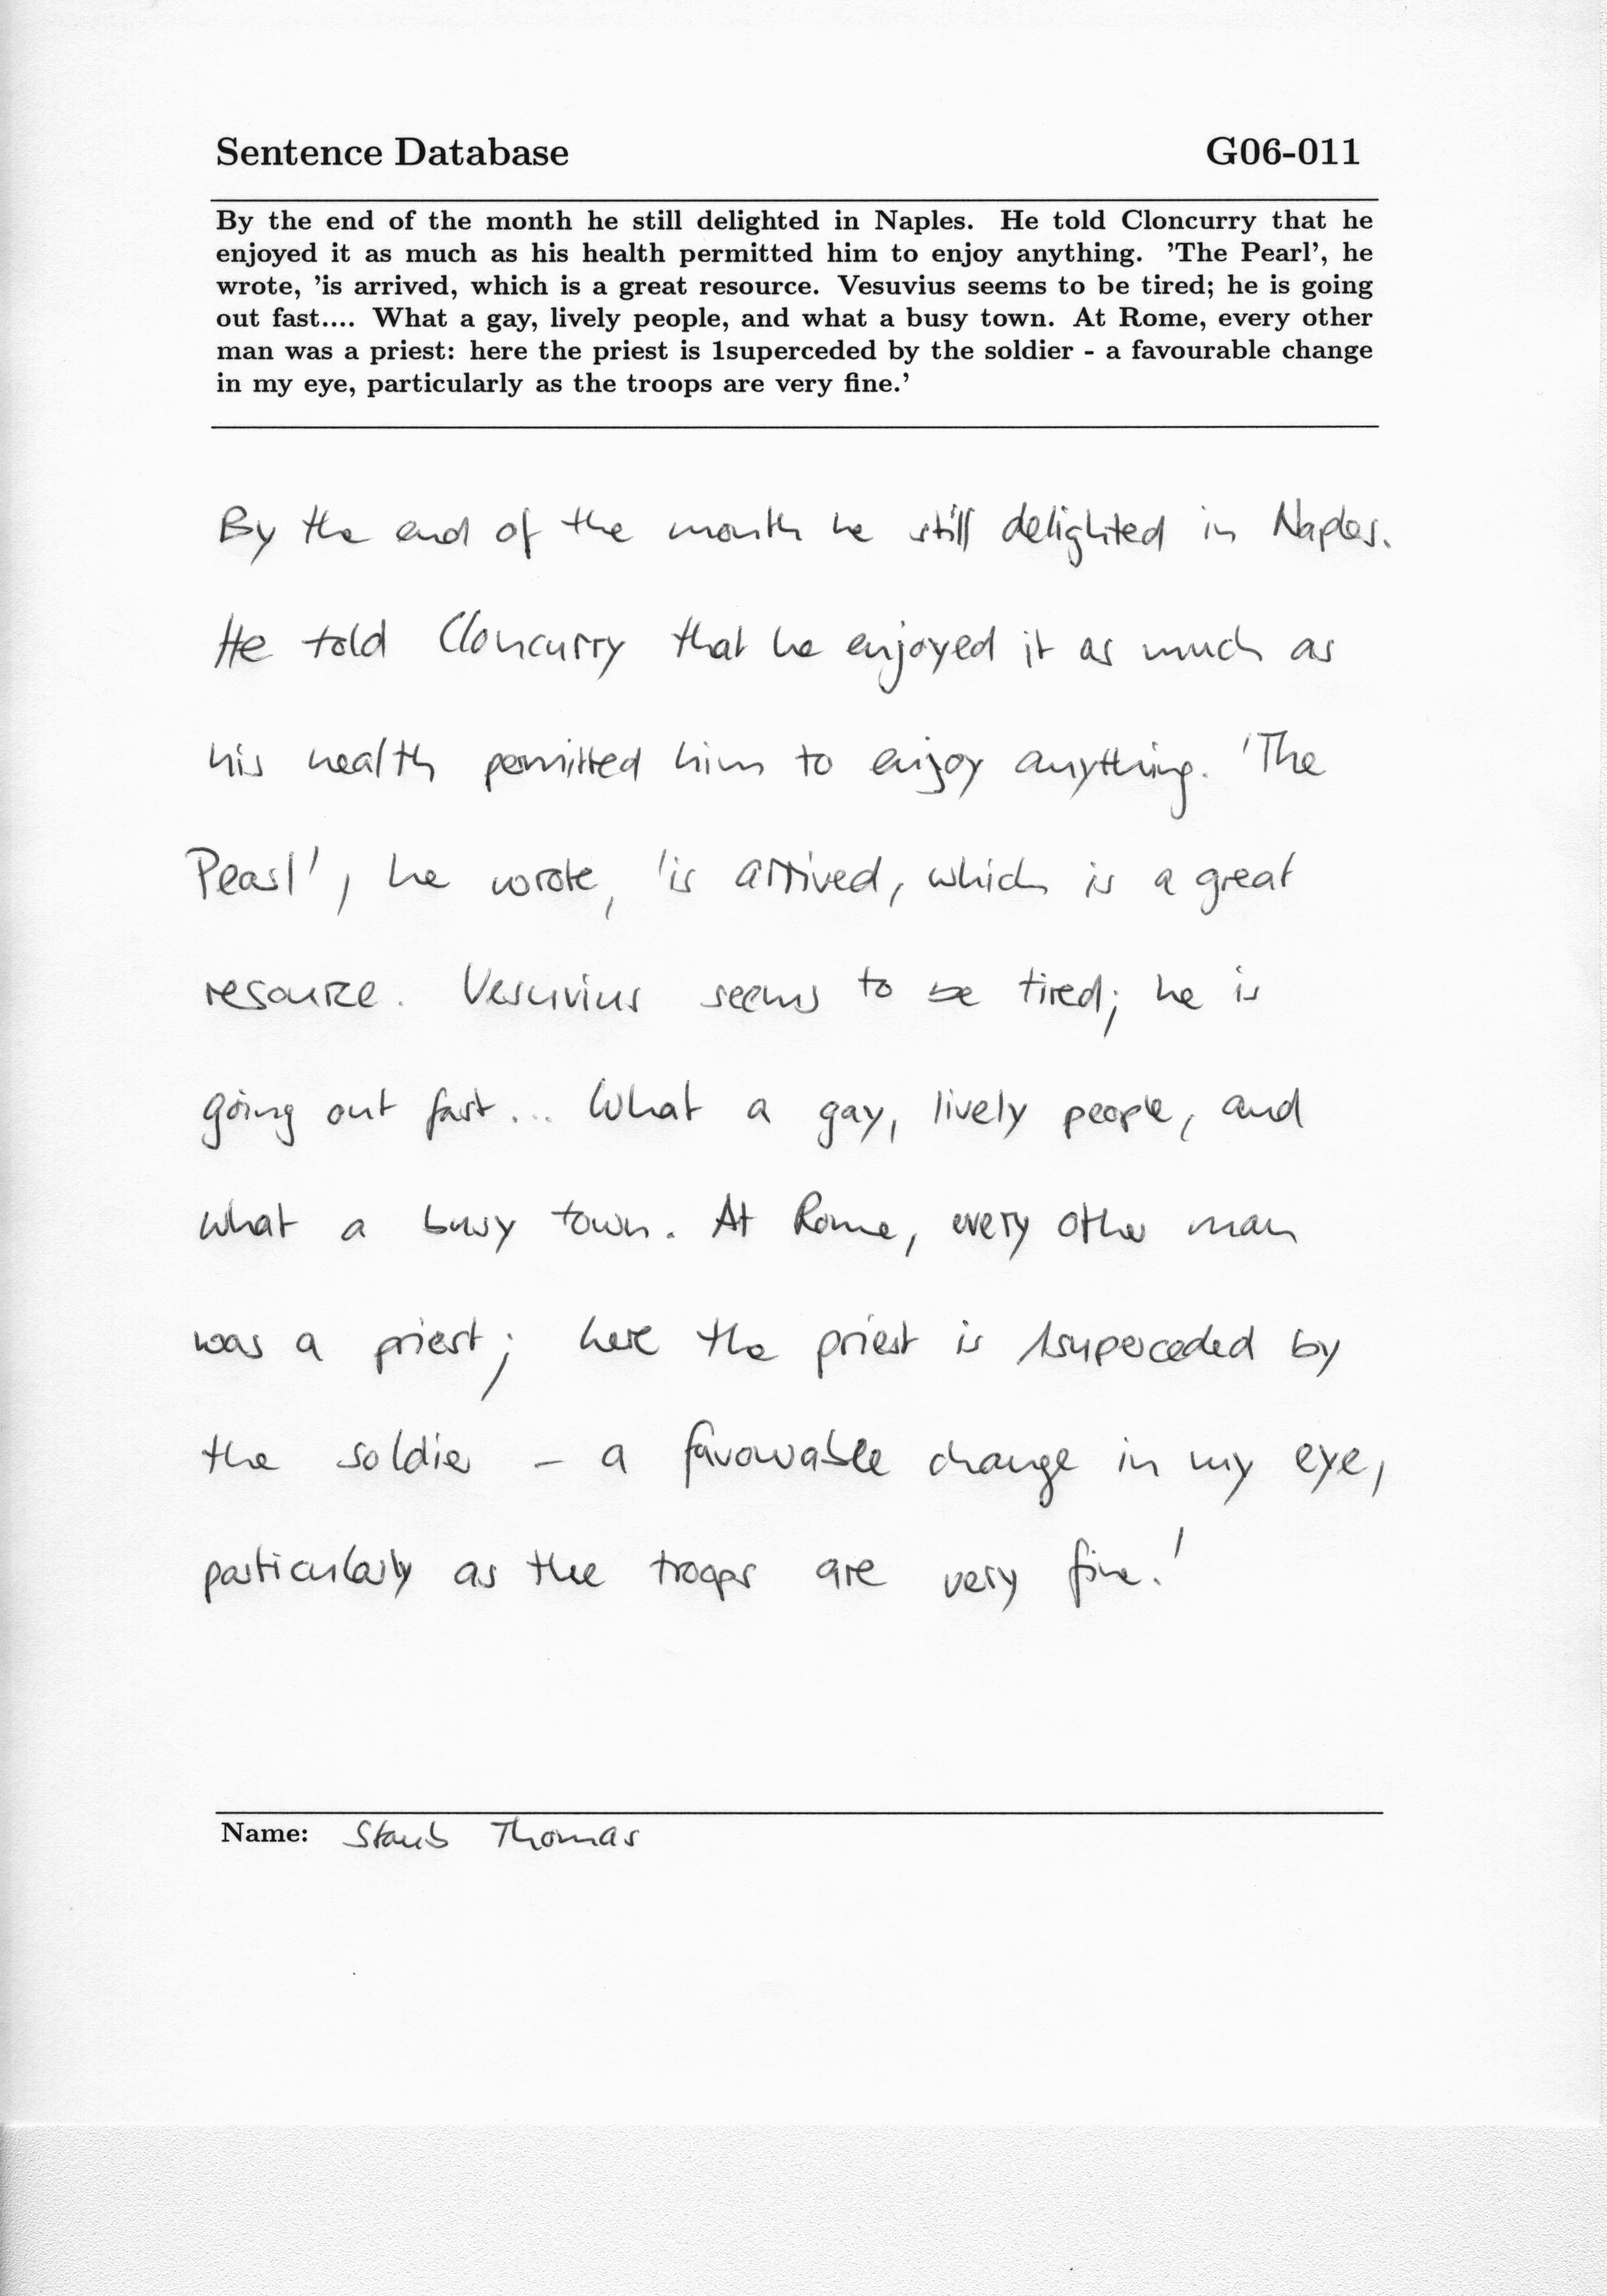 Sentence Database G06-011
By the end of the month he still delighted in Naples. He told Cloncurry that he
enjoyed it as much as his health permitted him to enjoy anything. 'The Pearl', he
wrote, 'is arrived, which is a great resource. Vesuvius seems to be tired; he is going
out fast.... What a gay, lively people, and what a busy town. At Rome, every other
man was a priest: here the priest is 1superceded by the soldier - a favourable change
in my eye, particularly as the troops are very fine.'
By the end of the month he still delighted in Naples.
He told Cloncurry that he enjoyed it as much as
his health permitted him to enjoy anything. 'The
Pearl', he wrote, 'is arrived, which is a great
resource. Vesuvius seems to be tired; he is
going out fast... What a gay, lively people, and
what a busy town. At Rome, every other man
was a priest; here the priest is 1superceded by
the soldier - a favourable change in my eye,
particularly as the troops are very fine.'
Name: Staub Thomas